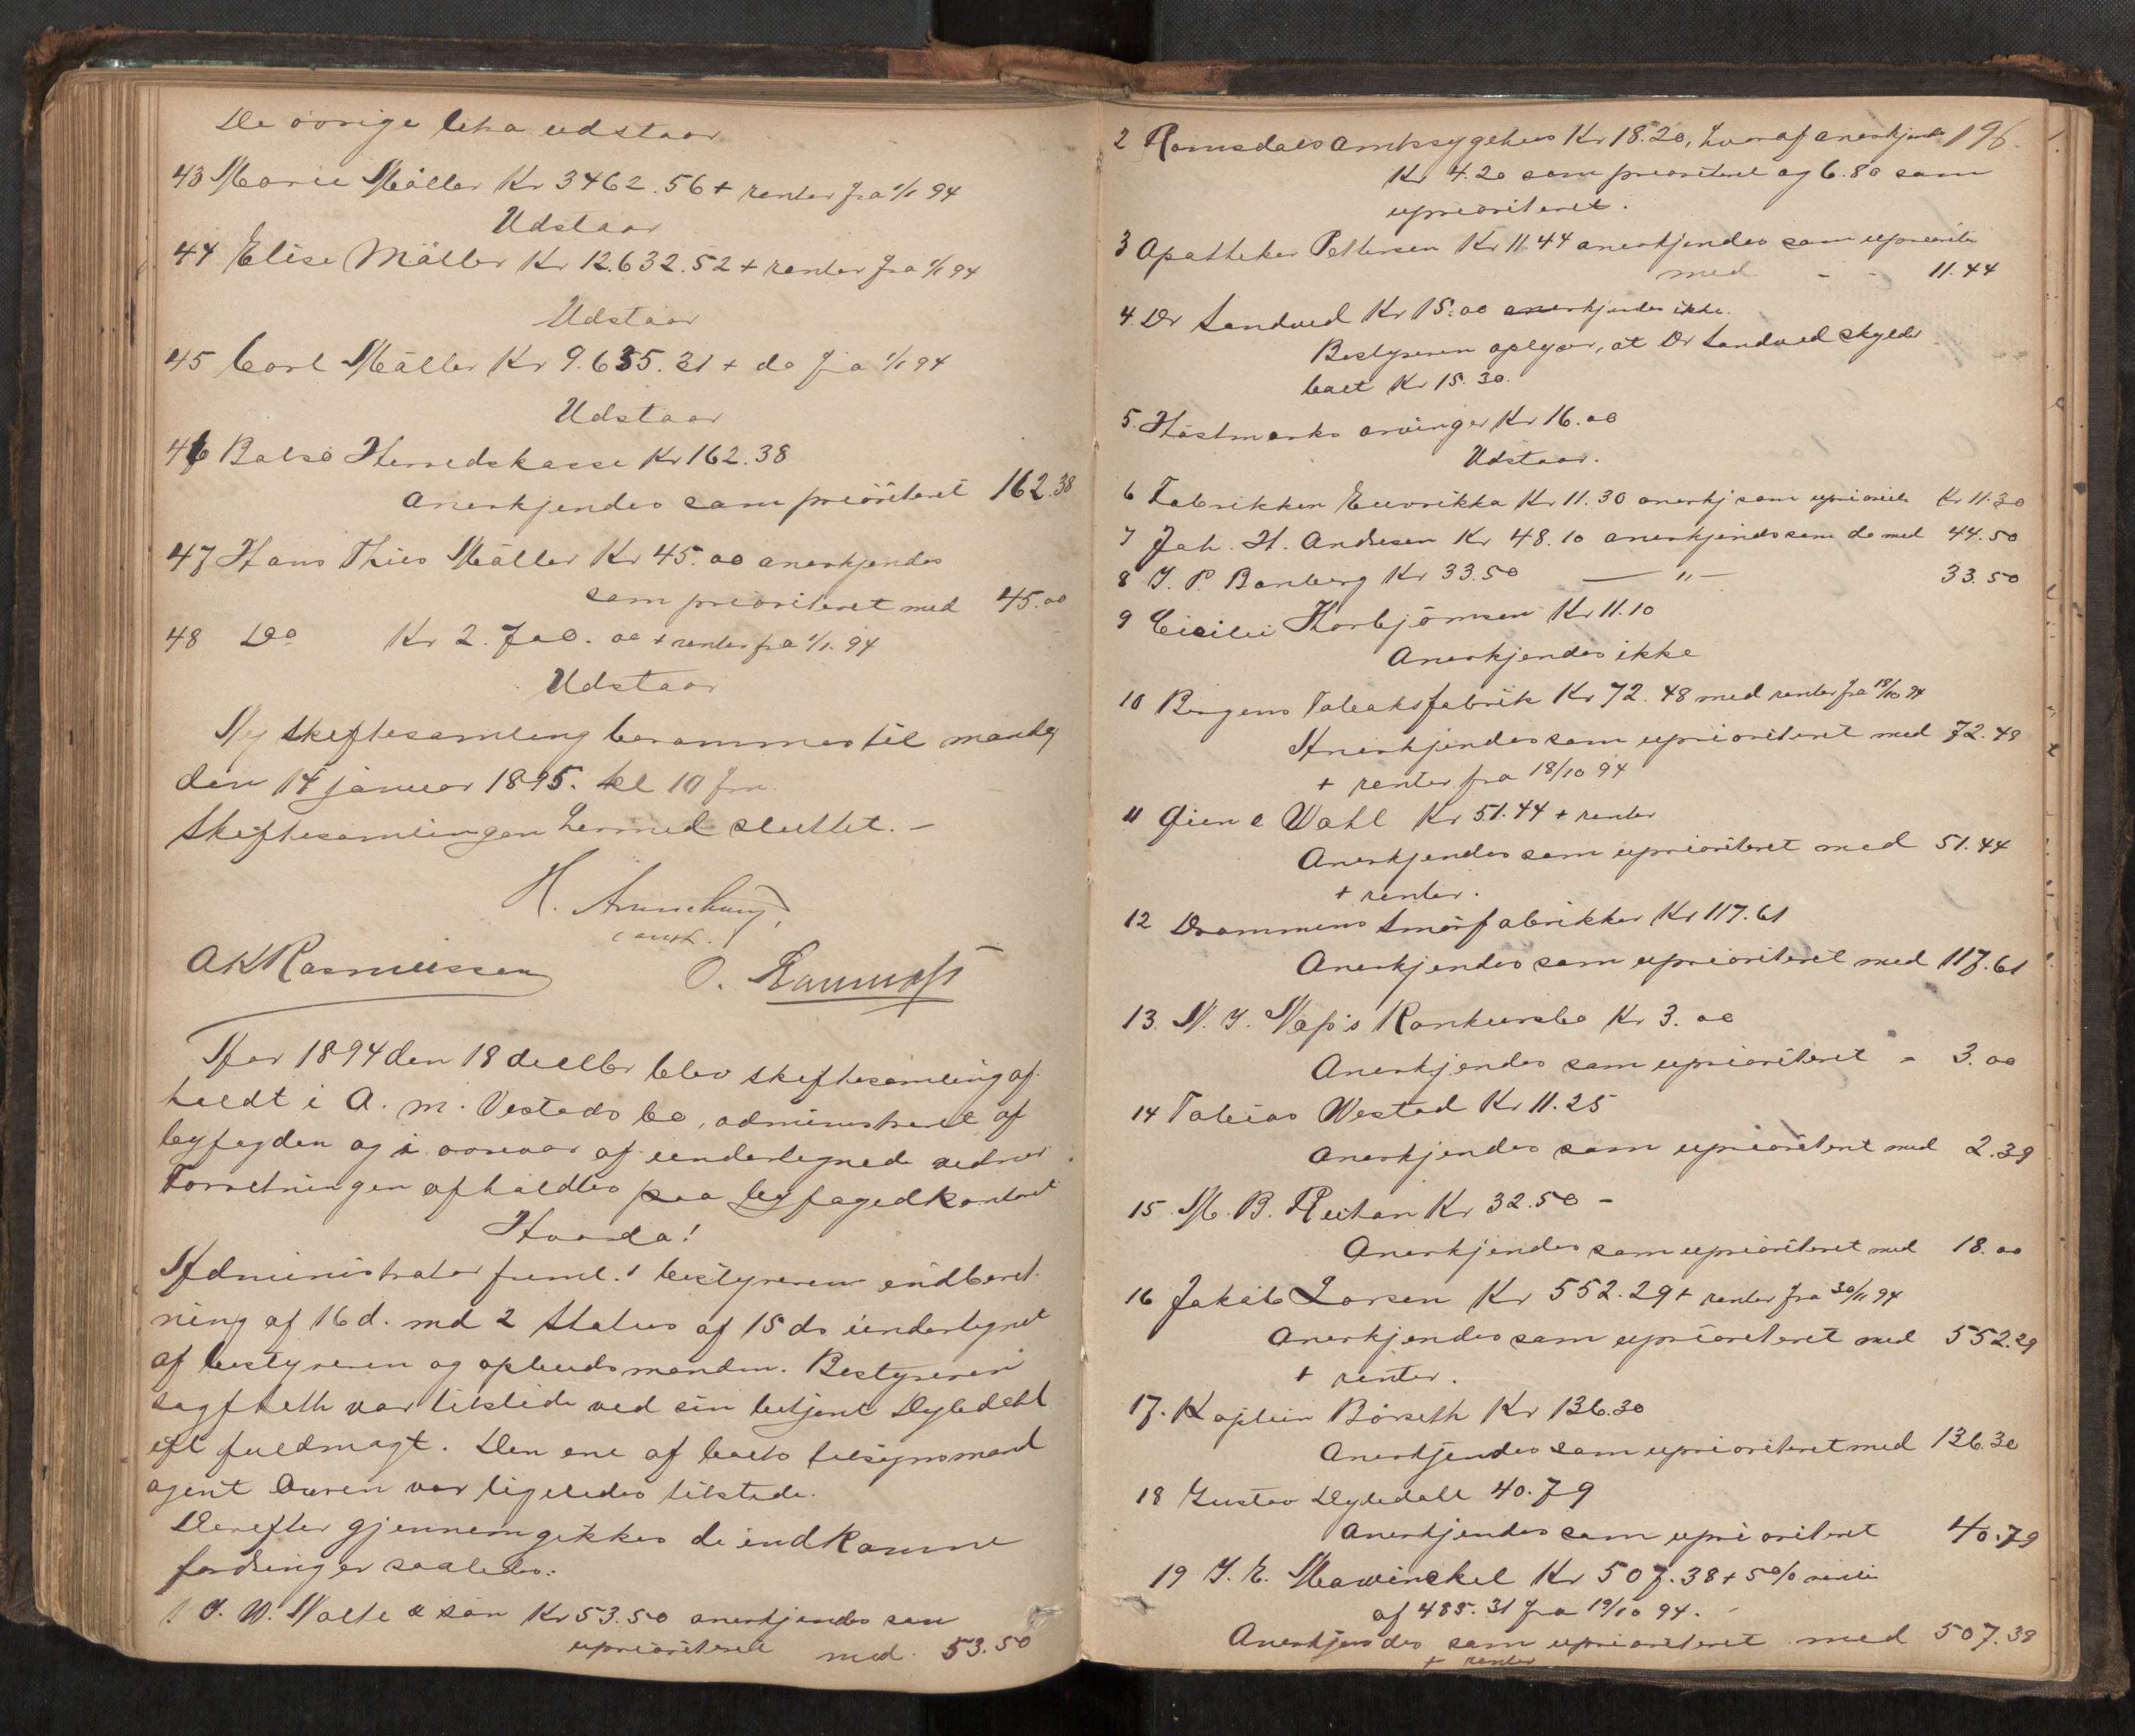 De øvrige litra udstaar
43 Marie Møller Kr 3462.56 + renter fra 1/1 94
Udstaar
44 Elise Møller Kr 12.632.52 + renter fra 1/1 94
Udstaar
45 Carl Møller Kr 9.635.31 + do fra 1/1 94
Udstaar
46 Bolsø Herredskasse Kr 162.38
Anerkjendes som prioriteret 162.38
47 Hans Thiis Møller Kr 45.00 anerkjendes
som prioriteret med 45.00
48 Do Kr 2.700.00 + renter fra 1/1 94
Udstaar
Ny skiftesamling berammes til mandag
den 14 januar 1895. kl 10 fm.
Skiftesamlingen hermed sluttet. –
H.
const.
AKRasmussen O.
Aar 1894 den 18 decbr blev skiftesamling af-
holdt i A. M. Vestads bo, administreret af
byfogden og i overvær af undertegnede vidner
Forretningen afholdtes paa byfogedkontoret
Hvorda!
Administrator freml. bestyrerens indberet-
ning af 16 d. md 2 Status af 15 ds undertegnet
af bestyreren og opbudsmanden. Bestyreren
sagf var tilstede ved sin betjent Dybdahl
eft fuldmagt. Den ene af boets tilsynsmænd
agent Owren var ligeledes tilstede.
Derefter gjennemgikkes de indkomne
fordringer saaledes:
1 J. W. Nolte & søn Kr 53.50 anerkjendes som
uprioriteret med 53.50
196.
2 Romsdals amtssygehus Kr 18.20, hvoraf anerkjendes
Kr 4.20 som prioriteret og 6.80 som
uprioriteret.
3 Apotheker Pettersen Kr 11.44 anerkjendes som uprioritr
med - - 11.44
4. Dr Sandved Kr 15.00 anerkjendes ikke.
Bestyreren oplyser, at Dr Sandved skylder
boet Kr 15.30.
5. Høstmarks arvinger Kr 16.00
Udstaar.
6 Fabrikken Eurikka Kr 11.30 anerkj som uprioritr Kr 11.30
7 Joh. H. Andresen Kr 48.10 anerkjendes som do med 44.50
8 J. P. Banberg Kr 33.50 — " — 33.50
9 Cicilie Thorbjørnsen Kr 11.10
Anerkjendes ikke
10 Bergens Tobaksfabrik Kr 72.48 med renter fra 18/10 94
Anerkjendes som uprioriteret med 72.48
+ renter fra 18/10 94
11 Gien & Wahl Kr 51.44 + renter
Anerkjendes som uprioriteret med 51.44
+ renter.
12 Drammens Smørfabrikker Kr 117.61
Anerkjendes som uprioriteret med 117.61
13. N. J. Næss's Konkursbo Kr 3.00
Anerkjendes som uprioriteret - 3.00
14 Tobias Westad Kr 11.25
Anerkjendes som uprioriteret med 2.39
15. M. B. Reitan Kr 32.50 –
Anerkjendes som uprioriteret med 18.00
16 Jakob Larsen Kr 552.29 + renter fra 30/11 94
Anerkjendes som uprioriteret med 552.29
+ renter.
17. Kaptein Børseth Kr 136.30
Anerkjendes som uprioriteret med 136.30
18 Gustav Dybdahl 40.79
Anerkjendes som uprioriteret 40.79
19 J. E. Mowinckel Kr 507.38 + 5% rente
af 485.31 fra 19/10 94.
Anerkjendes som uprioriteret med 507.38
+ renter